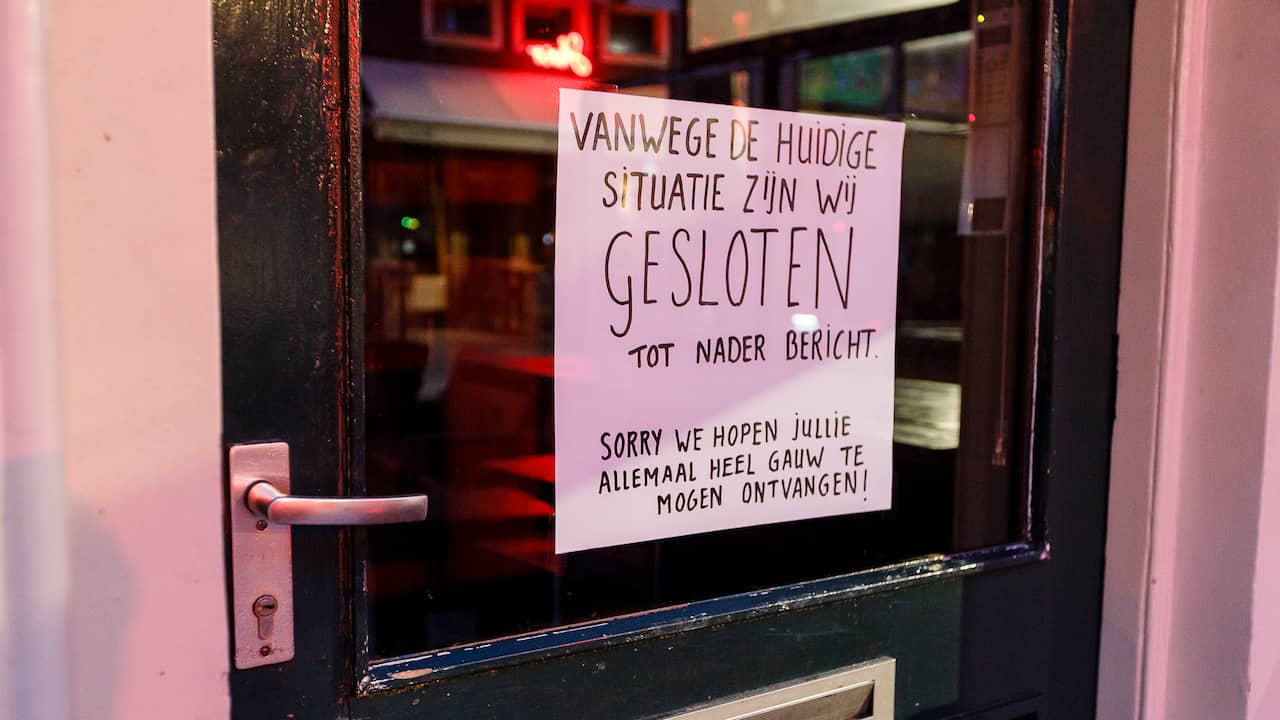 VANWEGE DE HUIDIGE
SITUATIE ZIJN WIJ
GESLOTEN
TOT NADER BERICHT.
SORRY WE HOPEN JULLIE
ALLEMAAL HEEL GAUW TE
MOGEN ONTVANGEN!